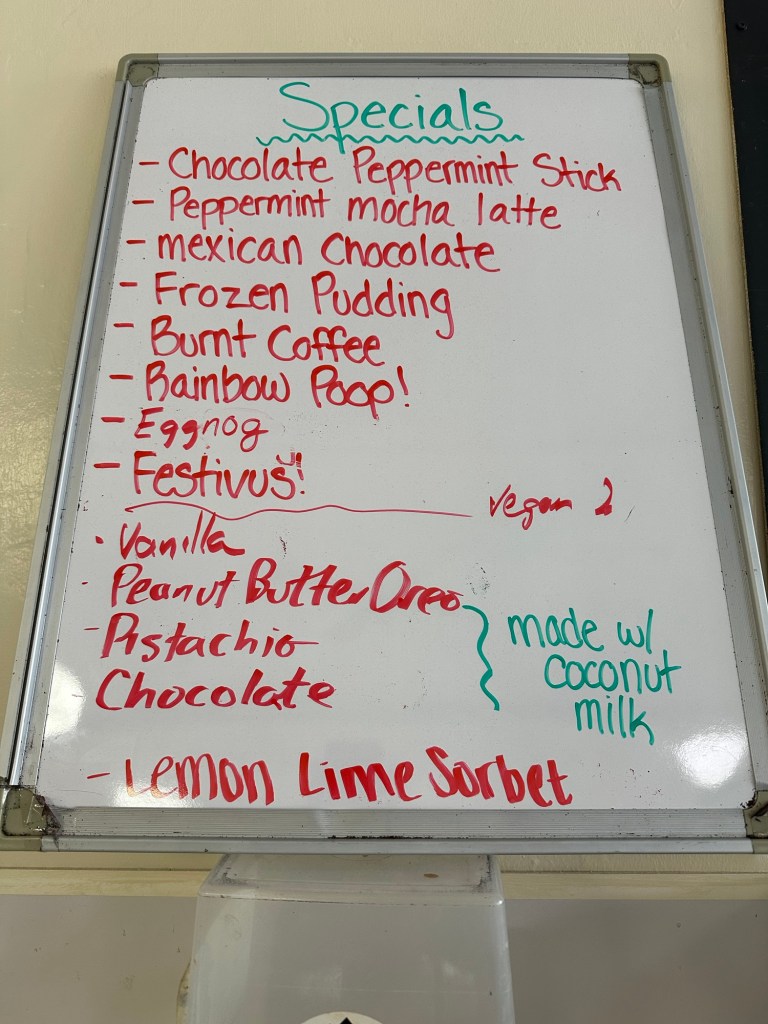 Specials
- Chocolate Peppermint Stick
- Peppermint mocha latte
- mexican Chocolate
- Frozen Pudding
- Burnt Coffee
- Rainbow Poop!
- Eggnog
- Festivus!
vegan
· Vanilla
· Peanut Butter Oreo
- Pistachio
Chocolate
made w/
coconut
milk
- Lemon Lime Sorbet